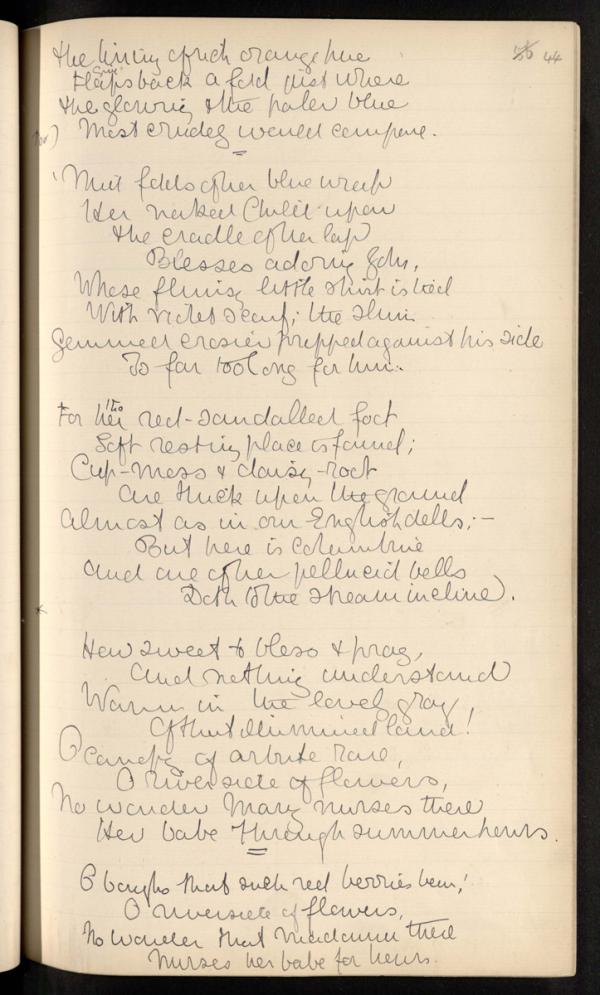 56 44
the lining of rich orange hue
Flaps back a fold just where
the glowing & the paler blue
Most crudely would compare.
'Mid folds of her blue wrap
Her naked Child upon
the cradle of her lap
Blesses adoring John,
Whose flimsy little shirt is tied
With violet scarf; the slim
Gemmed crosier propped against his side
Is far too long for him.
For the red-sandalled foot
Soft resting place is found;
Cup-moss & daisy-root
are thick upon the ground
Almost as in our English dells;—
But here is columbine
And one of her pellucid bells
Doth to the stream incline.
How sweet to bless & pray,
And nothing understand
Warm in the lovely gray,
Of that illumined land!
O canopy of arbute rare,
O riverside of flowers,
No wonder Mary nurses there
Her babe through summer hours.
O boughs that such red berries bear,!
O riverside of flowers,
No wonder that Madonna there
Nurses her babe for hours.